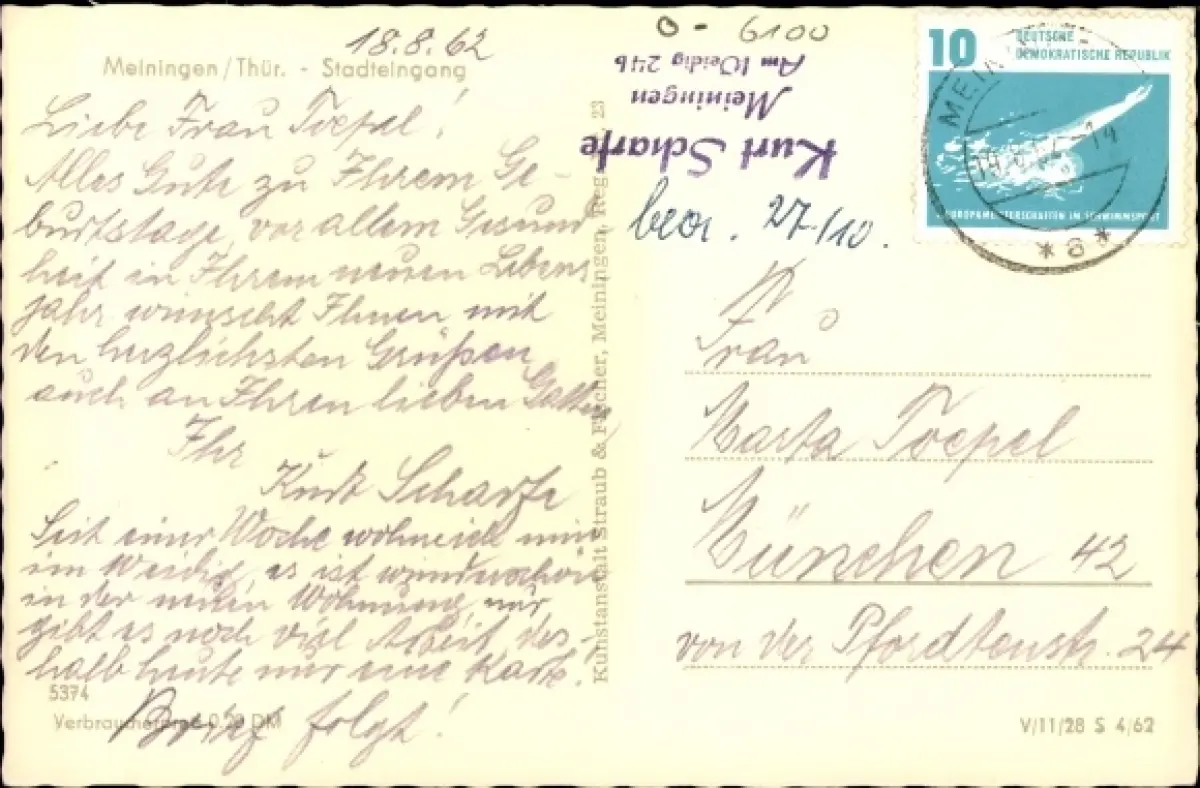 18.8.62
Meiningen/Thür. - Stadteingang
Liebe Frau Toepel!
Alles Gute zu Ihrem Ge-
burtstage, vor allem Gesund
heit in Ihrem neuen Lebens
jahr wünscht Ihnen mit
den herzlichsten Grüßen
auch an Ihren lieben Gatten
Ihr
Kurt Scharfe
Seit einer Woche wohne ich nun
im Weidig, es ist wunderschön
in der neuen Wohnung, nur
gibt es noch viel Arbeit, des-
halb heute nur eine Karte!
Brief folgt!
5374
Verbraucherpreis 0.20 DM
Kunstanstalt Straub & Fischer, Meiningen, Reg. 23
O - 6100
Kurt Scharfe
Meiningen
Am Weidig 24b
bear. 27./10.
10
DEUTSCHE
DEMOKRATISCHE REPUBLIK
EUROPAMEISTERSCHAFTEN IM SCHWIMMSPORT
Frau
Marta Toepel
München 42
von der Pfordtenstr. 24
V/11/28 S 4/62